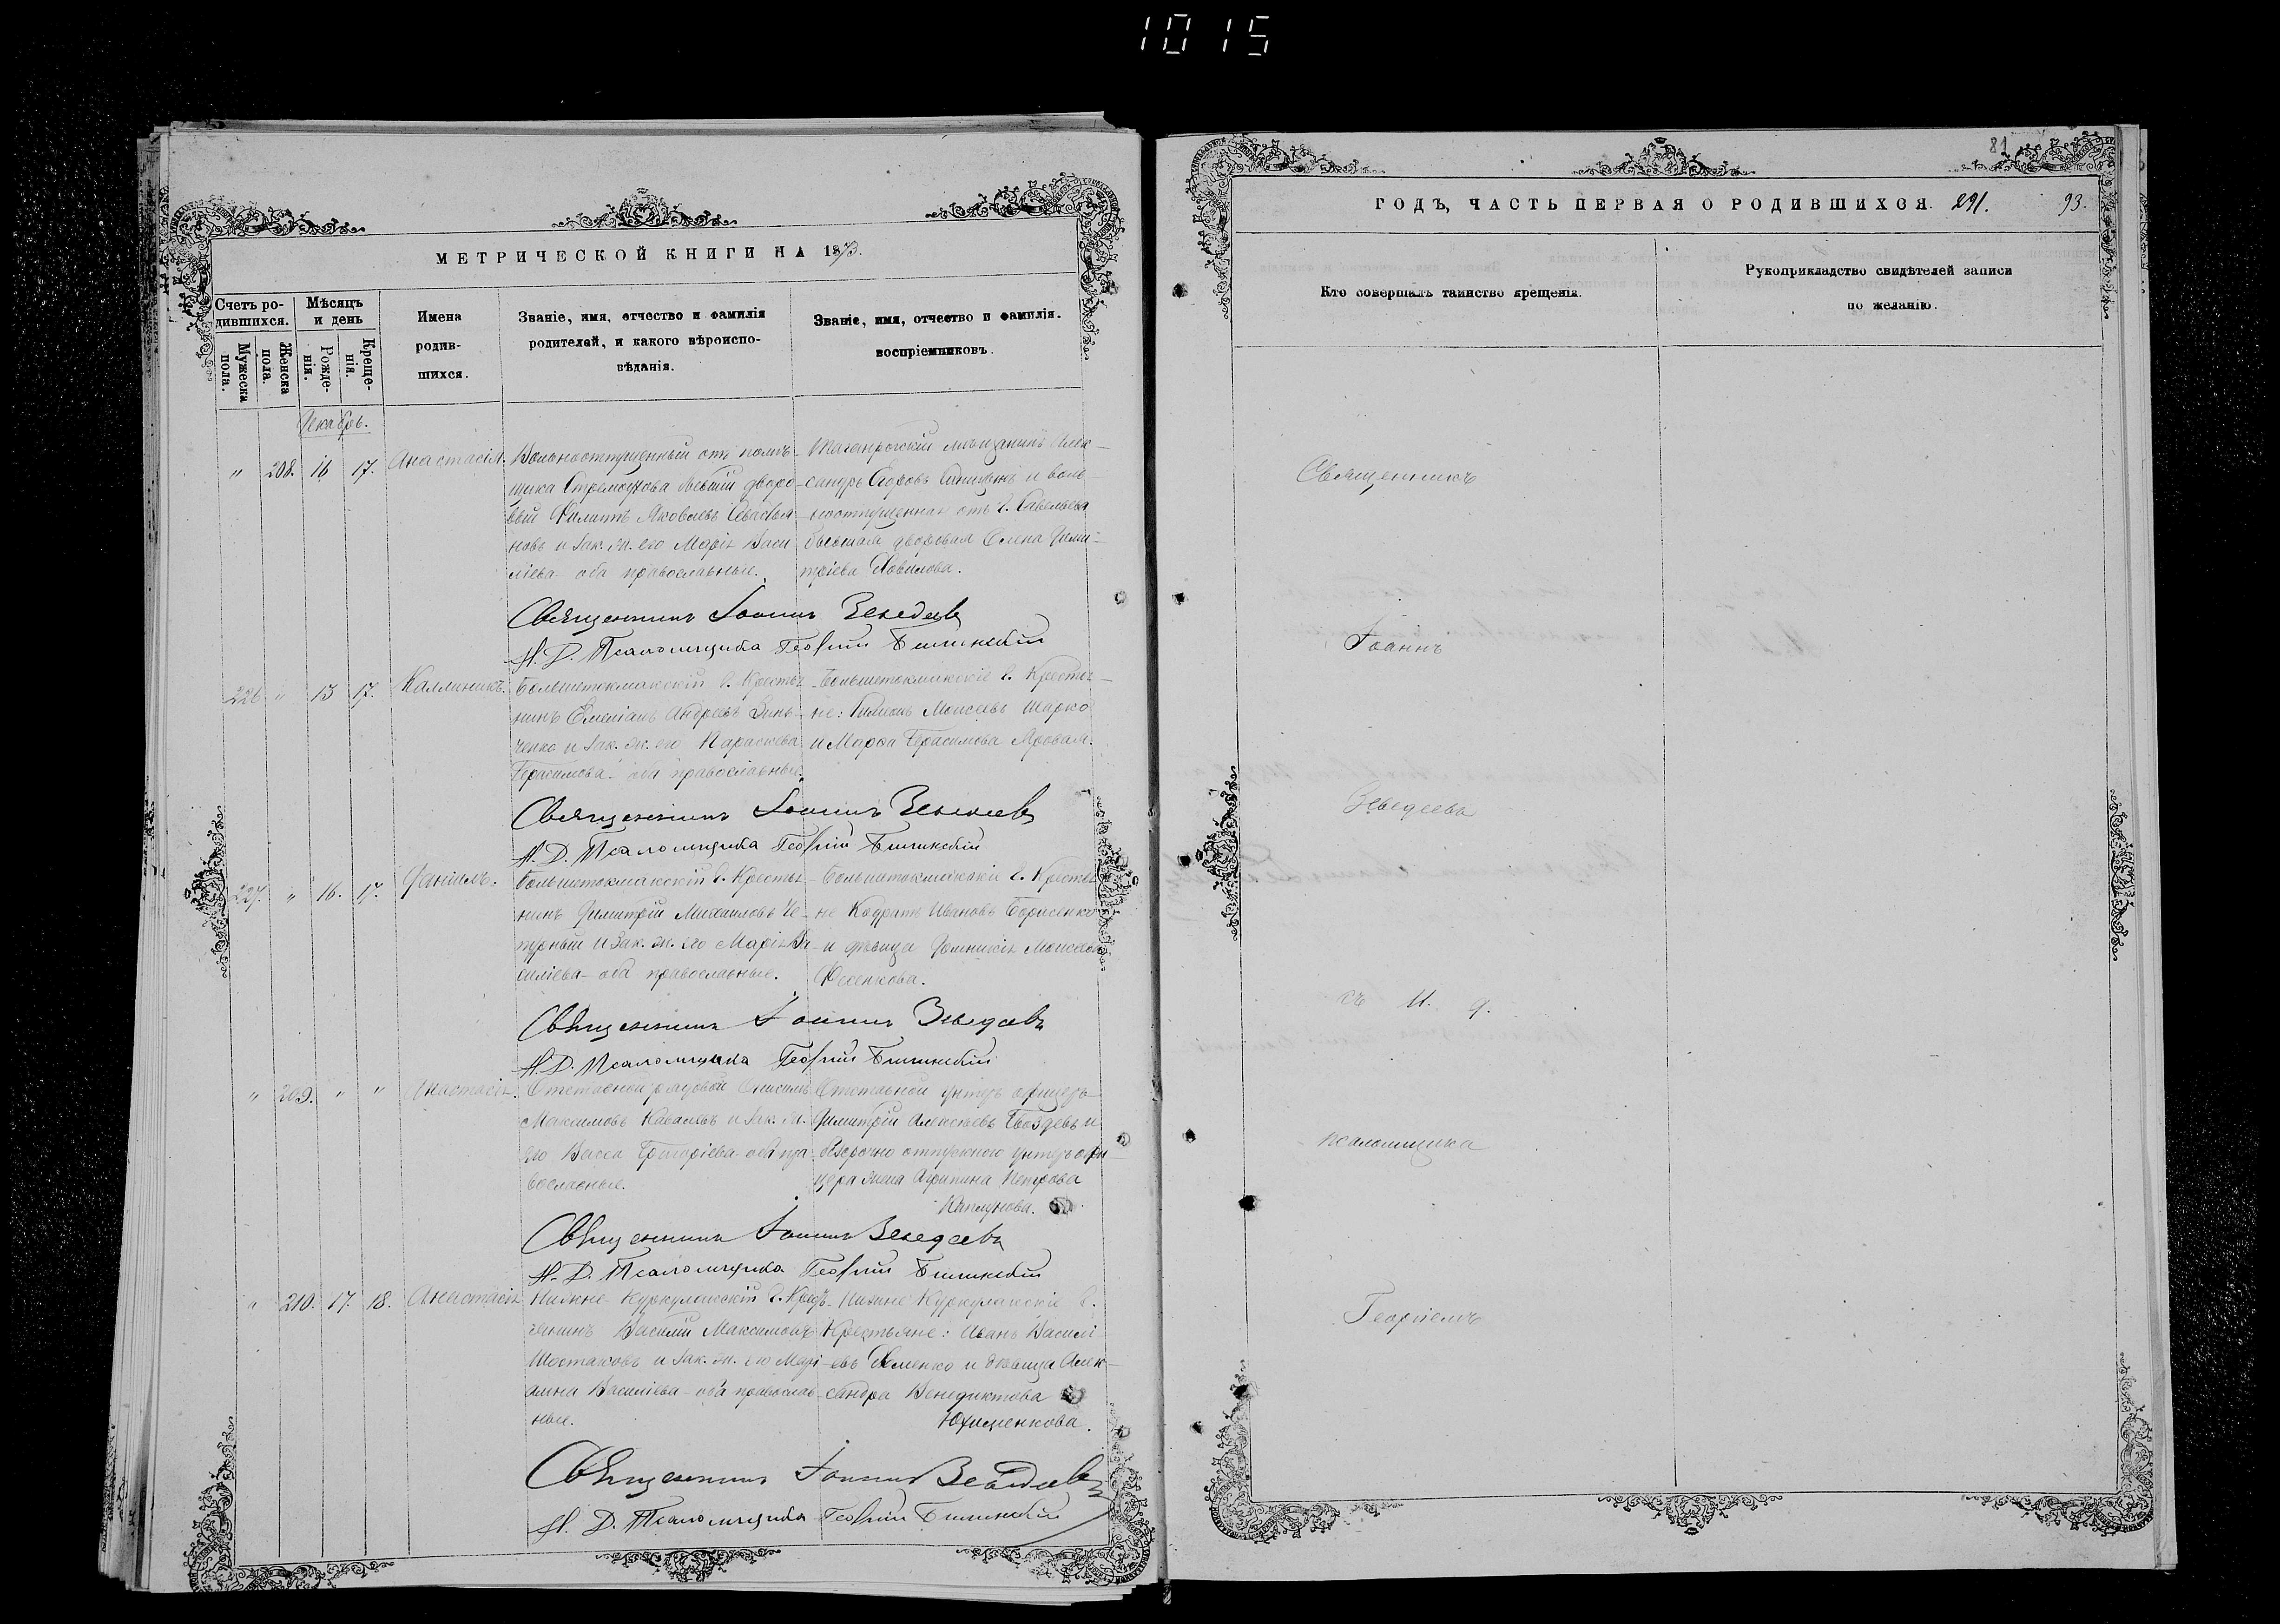 1015
МЕТРИЧЕСКОЙ КНИГИ НА 1873.
Счетъ ро-
дившихся.
Мужеска
пола.
Женска
пола.
Мѣсяцъ
и день
Рожде-
нія.
Креще-
нія.
Имена
родив-
шихся.
Званіе, имя, отчество и фамилія
родителей, и какого вѣроиспо-
вѣданія.
Званіе, имя, отчество и фамилія.
воспріемниковъ.
Декабрь.
" 208. 16 17. Анастасія.
Вольноотпущенный отъ помѣ-
щика бывшій дворо-
вый Филиппъ Яковлевъ Севастья-
новъ и зак. ж. его Марія Васи
ліева оба православные.
Таганрогскій мѣщанинъ Алек-
сандръ и воль-
ноотпущенная отъ г.
бывшая дворовая Елена Дими-
тріева
Священникъ Іоаннъ Зеведеевъ
И. Д. Псаломщика Георгій
226 " 13 17. Каллиникъ.
Большетокмакскій г. Крестья-
нинъ Емеліанъ Андреевъ Зинь-
ченко и зак. ж. его Параскева
Герасимова оба православные.
Большетокмакскіе г. Крестья-
не: Моисеевъ Шарко
и Марѳа Герасимова Яровая.
Священникъ Іоаннъ Зеведеевъ
И. Д. Псаломщика Георгій
227. " 16. 17. Даніилъ.
Большетокмакскій г. Крестья-
нинъ Димитрій Михаиловъ Че-
турный и зак. ж. его Марія Ва-
силіева оба православные.
Большетокмакскіе г. Крестья-
не Кодратъ Ивановъ Борисенко
и дѣвица Домникія Моисеева
Фесенкова.
Священникъ Іоаннъ Зеведеевъ
И. Д. Псаломщика Георгій
" 209. " " Анастасія.
Отставной рядовой Онисимъ
Максимовъ Ковалевъ и зак. ж.
его Васса Григоріева оба пра-
вославные.
Отставной унтеръ офицеръ
Димитрій Алексѣевъ Гвоздевъ и
безсрочно отпускного унтеръ офи-
цера жена Агрипина Петрова
Каплунова.
Священникъ Іоаннъ Зеведеевъ
И. Д. Псаломщика Георгій
" 210. 17. 18. Анастасія
Нижне-Куркулакскій г. Крес-
тянинъ Василій Максимовъ
Шостаковъ и зак. ж. его Марі-
амна Василіева оба православ-
ные.
Нижне Куркулакскіе г.
Крестьяне: Иванъ Васили-
евъ Хоменко и дѣвица Алек-
сандра Венедиктова
Юхименкова.
Священникъ Іоаннъ Зеведеевъ
И. Д. Псаломщика Георгій
81
ГОДЪ, ЧАСТЬ ПЕРВАЯ О РОДИВШИХСЯ. 291. 93.
Кто совершалъ таинство крещенія.
Рукоприкладство свидѣтелей записи
по желанію.
Священникъ
Іоаннъ
Зеведеевъ
съ И. д.
псаломщика
Георгіемъ